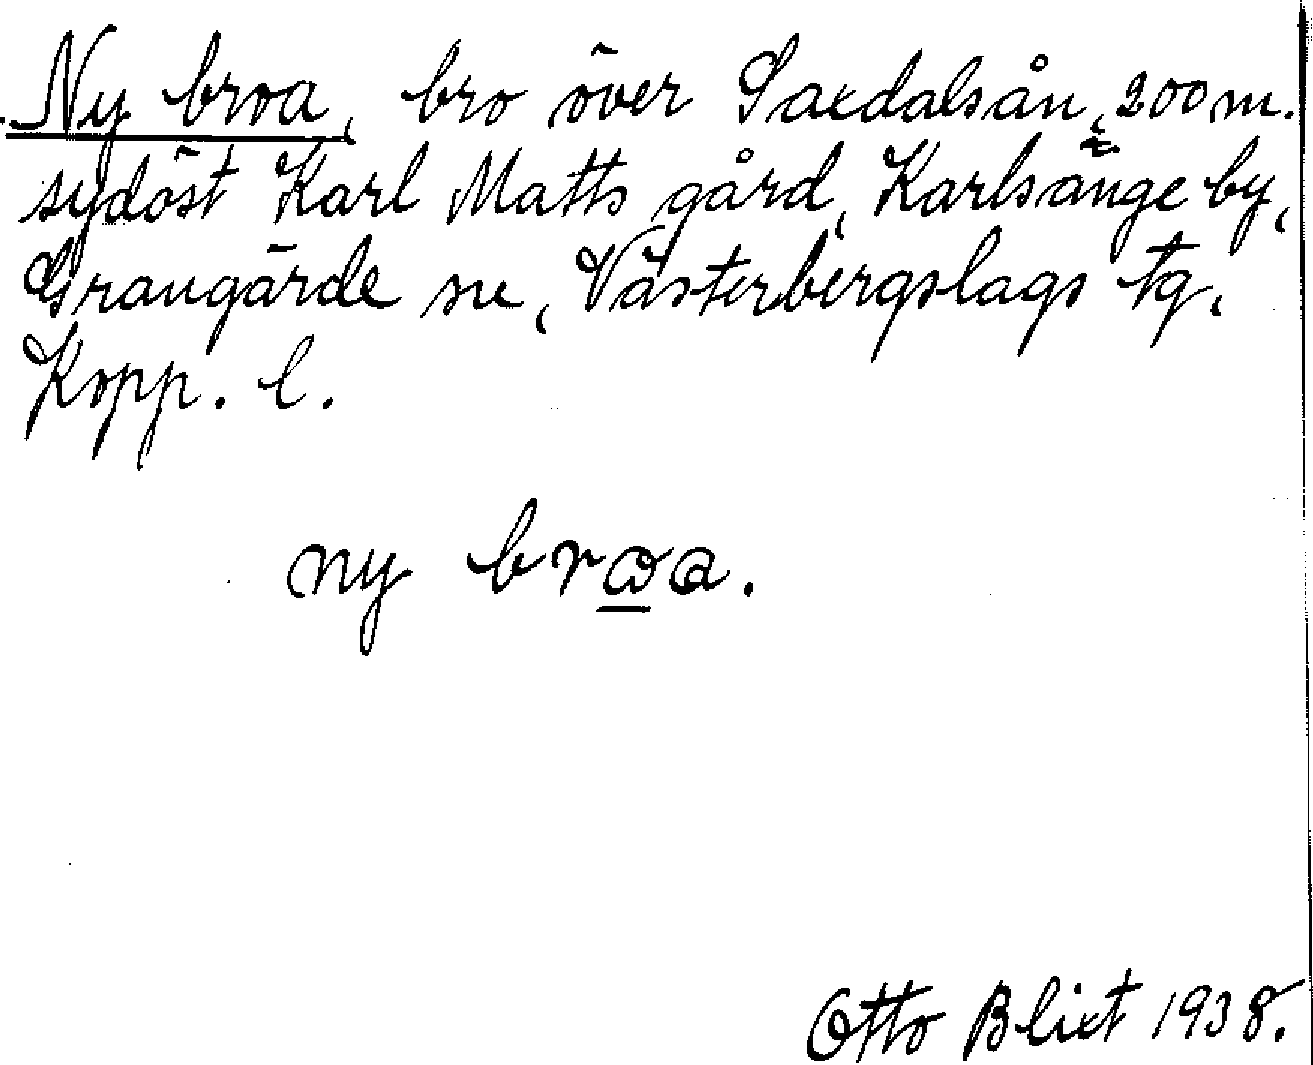 Ny broa, bro över Saxdalsån, 200 m.
sydöst Karl Matts gård, Karlsänge by,
Grangärde sn, Västerbergslags tg.
Kopp. l.
ny broa.
Otto Blixt 1938.